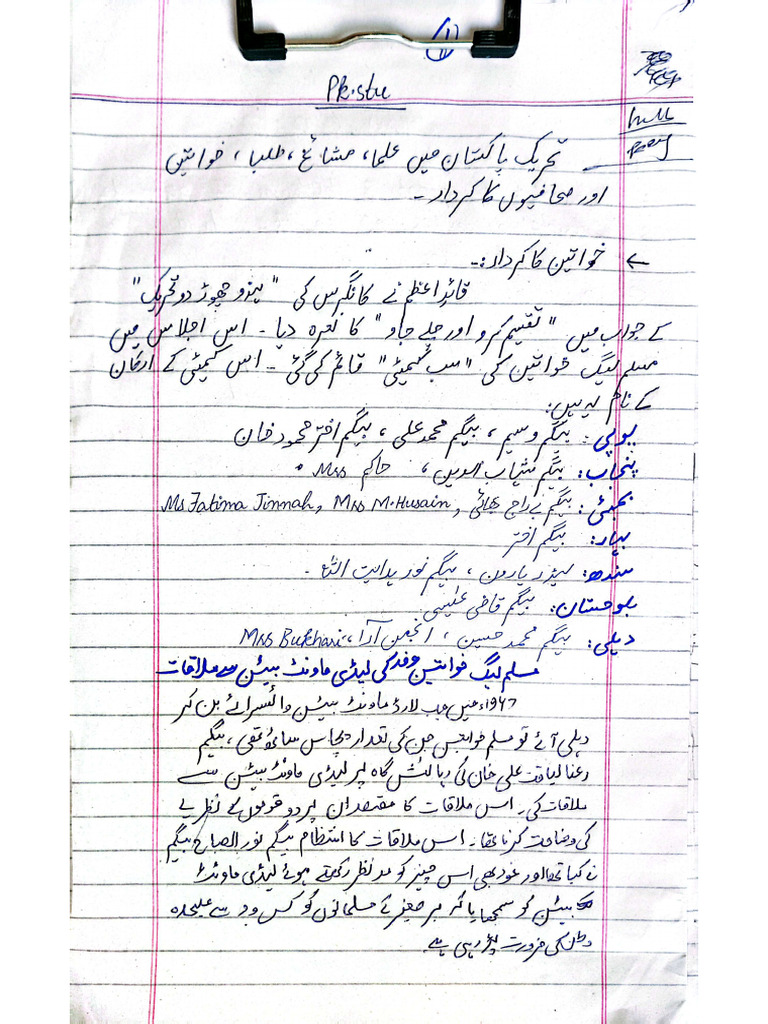 ①
Pk.stu
تحریک پاکستان میں علما، مشائخ، طلبا، خواتین
اور صحافیوں کا کردار۔
← خواتین کا کردار:-
قائداعظم نے کانگرس کی "ہندوچھوڑ دو تحریک"
کے جواب میں "تقسیم کرو اور چلے جاو" کا نعرہ دیا۔ اس اجلاس میں
مسلم لیگ خواتین کی "سب کمیٹی" قائم کی گئی۔ اس کمیٹی کے ارکان
کے نام یہ ہیں:
یوپی: بیگم وسیم، بیگم محمد علی، بیگم اختر محمود خان
پنجاب: بیگم شہاب الدین، حاکم Mrs.
بمبئی: بیگم بے راج بھائی, Mrs M.Husain, Ms Fatima Jinnah
بہار: بیگم اختر
سندھ: لیڈر ہارون، بیگم نور ہدایت اللہ۔
بلوچستان: بیگم قاضی عیسی
دہلی: بیگم محمد حسین، انجمن آرا، Mrs Bukhari
مسلم لیگ خواتین وفد کی لیڈی ماونٹ بیٹن سے ملاقات
۱۹۴۷ء میں جب لارڈ ماونٹ بیٹن وائسرائے بن کر
دہلی آئے تو مسلم خواتین جن کی تعداد پچاس ساٹھ تھی، بیگم
رعنا لیاقت علی خان کی رہائش گاہ پر لیڈی ماونٹ بیٹن سے
ملاقات کی۔ اس ملاقات کا مقصد ان پر دو قوموں کے نظریے
کی وضاحت کرنا تھا۔ اس ملاقات کا انتظام بیگم نور الصباح بیگم
نے کیا تھا اور خود بھی اس چیز کو مدنظر رکھتے ہوئے لیڈی ماونٹ
بیٹن کو سمجھایا کہ برصغیر کے مسلمانوں کو کس وجہ سے علیحدہ
وطن کی ضرورت پڑ رہی ہے۔